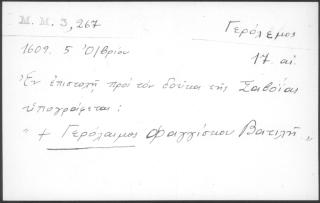 Μ. Μ. 3, 267
Γερόλεμος
1609. 5 8/βρίου
17. αἰ.
Ἐν ἐπιστολῇ πρὸς τὸν δούκα τῆς Σαβοΐας
ὑπογράφεται:
" + Γερόλαιμος Φραγγίσκου Βατιλῆ "